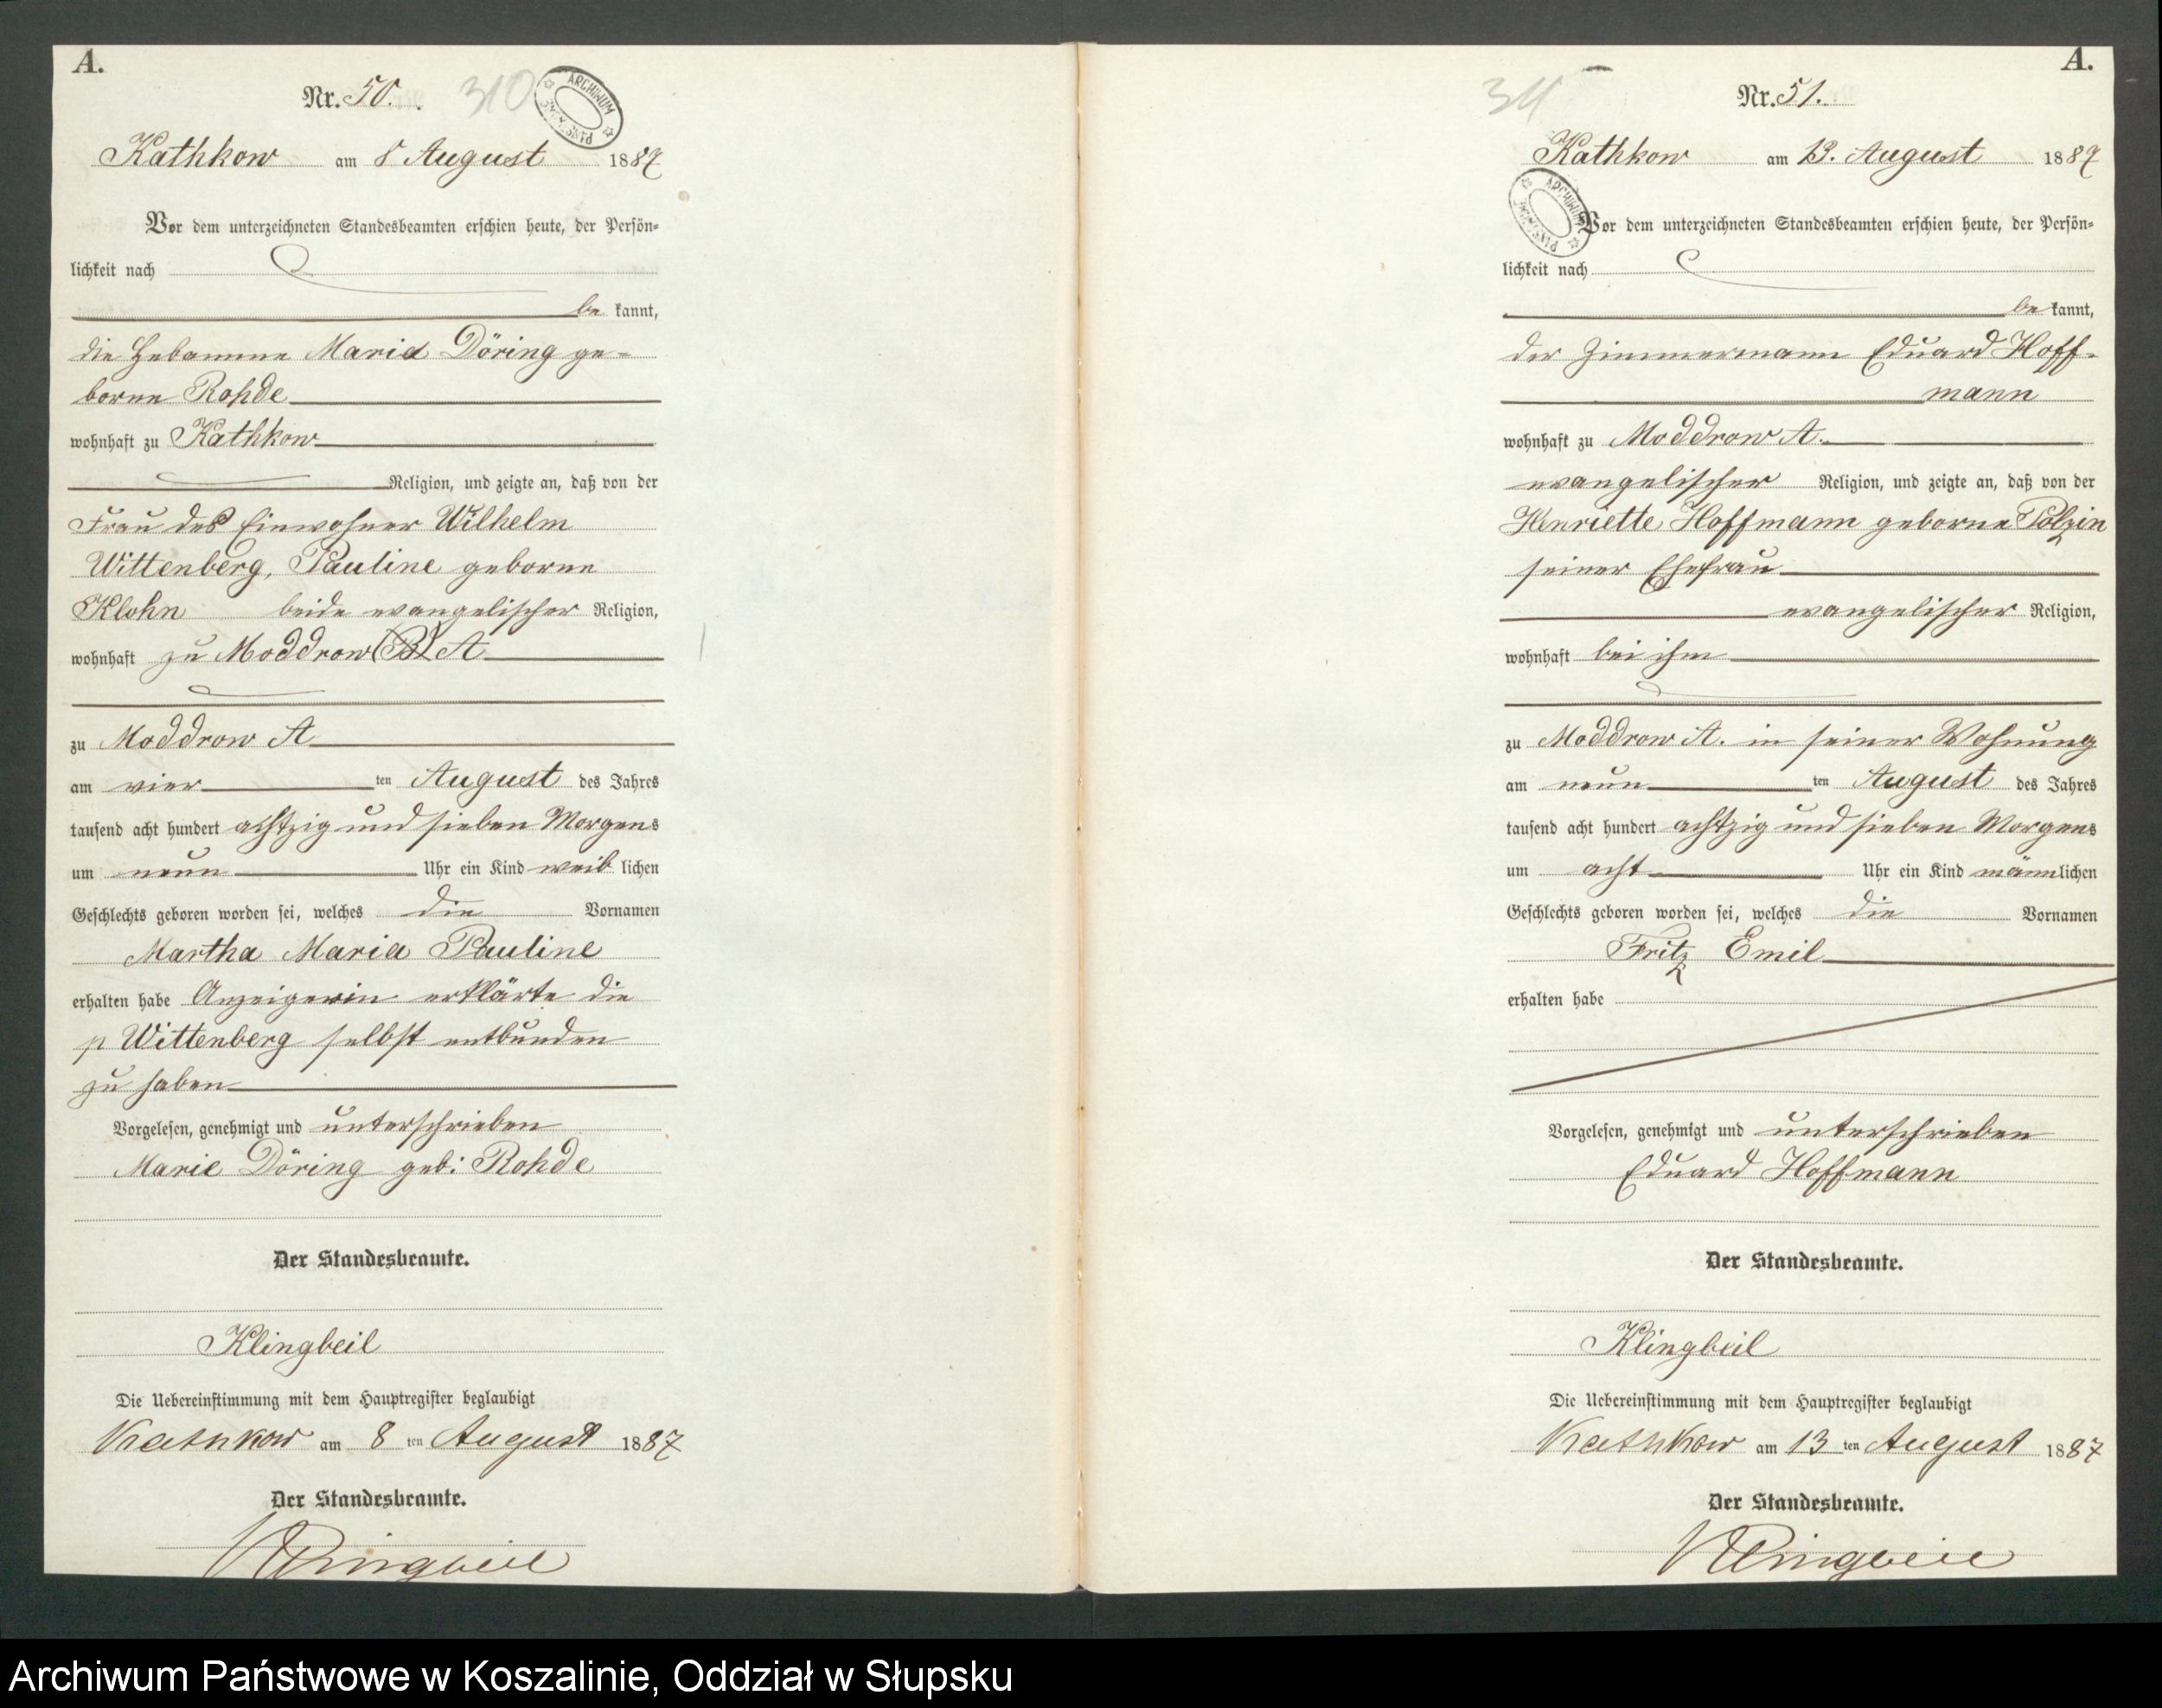 A.
Nr. 50.
310
ARCHIWUM PAŃSTWOWE
Kathkow am 8 August 1887
Vor dem unterzeichneten Standesbeamten erschien heute, der Persön-
lichkeit nach
be kannt,
die Hebamme Maria Döring ge-
borne Rohde
wohnhaft zu Kathkow
Religion, und zeigte an, daß von der
Frau des Einwohner Wilhelm
Wittenberg, Pauline geborne
Klohn beide evangelischer Religion,
wohnhaft zu Moddrow (B) A
zu Moddrow A
am vier ten August des Jahres
tausend acht hundert achtzig und sieben Morgens
um neun Uhr ein Kind weib lichen
Geschlechts geboren worden sei, welches die Vornamen
Martha Maria Pauline
erhalten habe Anzeigerin erklärte die
p Wittenberg selbst entbunden
zu haben
Vorgelesen, genehmigt und unterschrieben
Marie Döring geb: Rohde
Der Standesbeamte.
Klingbeil
Die Uebereinstimmung mit dem Hauptregister beglaubigt
Kathkow am 8 ten August 1887
Der Standesbeamte.
Klingbeil
A.
Nr. 51.
311
ARCHIWUM PAŃSTWOWE
Kathkow am 13. August 1887
Vor dem unterzeichneten Standesbeamten erschien heute, der Persön-
lichkeit nach
be kannt,
der Zimmermann Eduard Hoff-
mann
wohnhaft zu Moddrow A.
evangelischer Religion, und zeigte an, daß von der
Henriette Hoffmann geborne Polzin
seiner Ehefrau
evangelischer Religion,
wohnhaft bei ihm
zu Moddrow A. in seiner Wohnung
am neun ten August des Jahres
tausend acht hundert achtzig und sieben Morgens
um acht Uhr ein Kind männlichen
Geschlechts geboren worden sei, welches die Vornamen
Fritz Emil
erhalten habe
Vorgelesen, genehmigt und unterschrieben
Eduard Hoffmann
Der Standesbeamte.
Klingbeil
Die Uebereinstimmung mit dem Hauptregister beglaubigt
Kathkow am 13 ten August 1887
Der Standesbeamte.
Klingbeil
Archiwum Państwowe w Koszalinie, Oddział w Słupsku